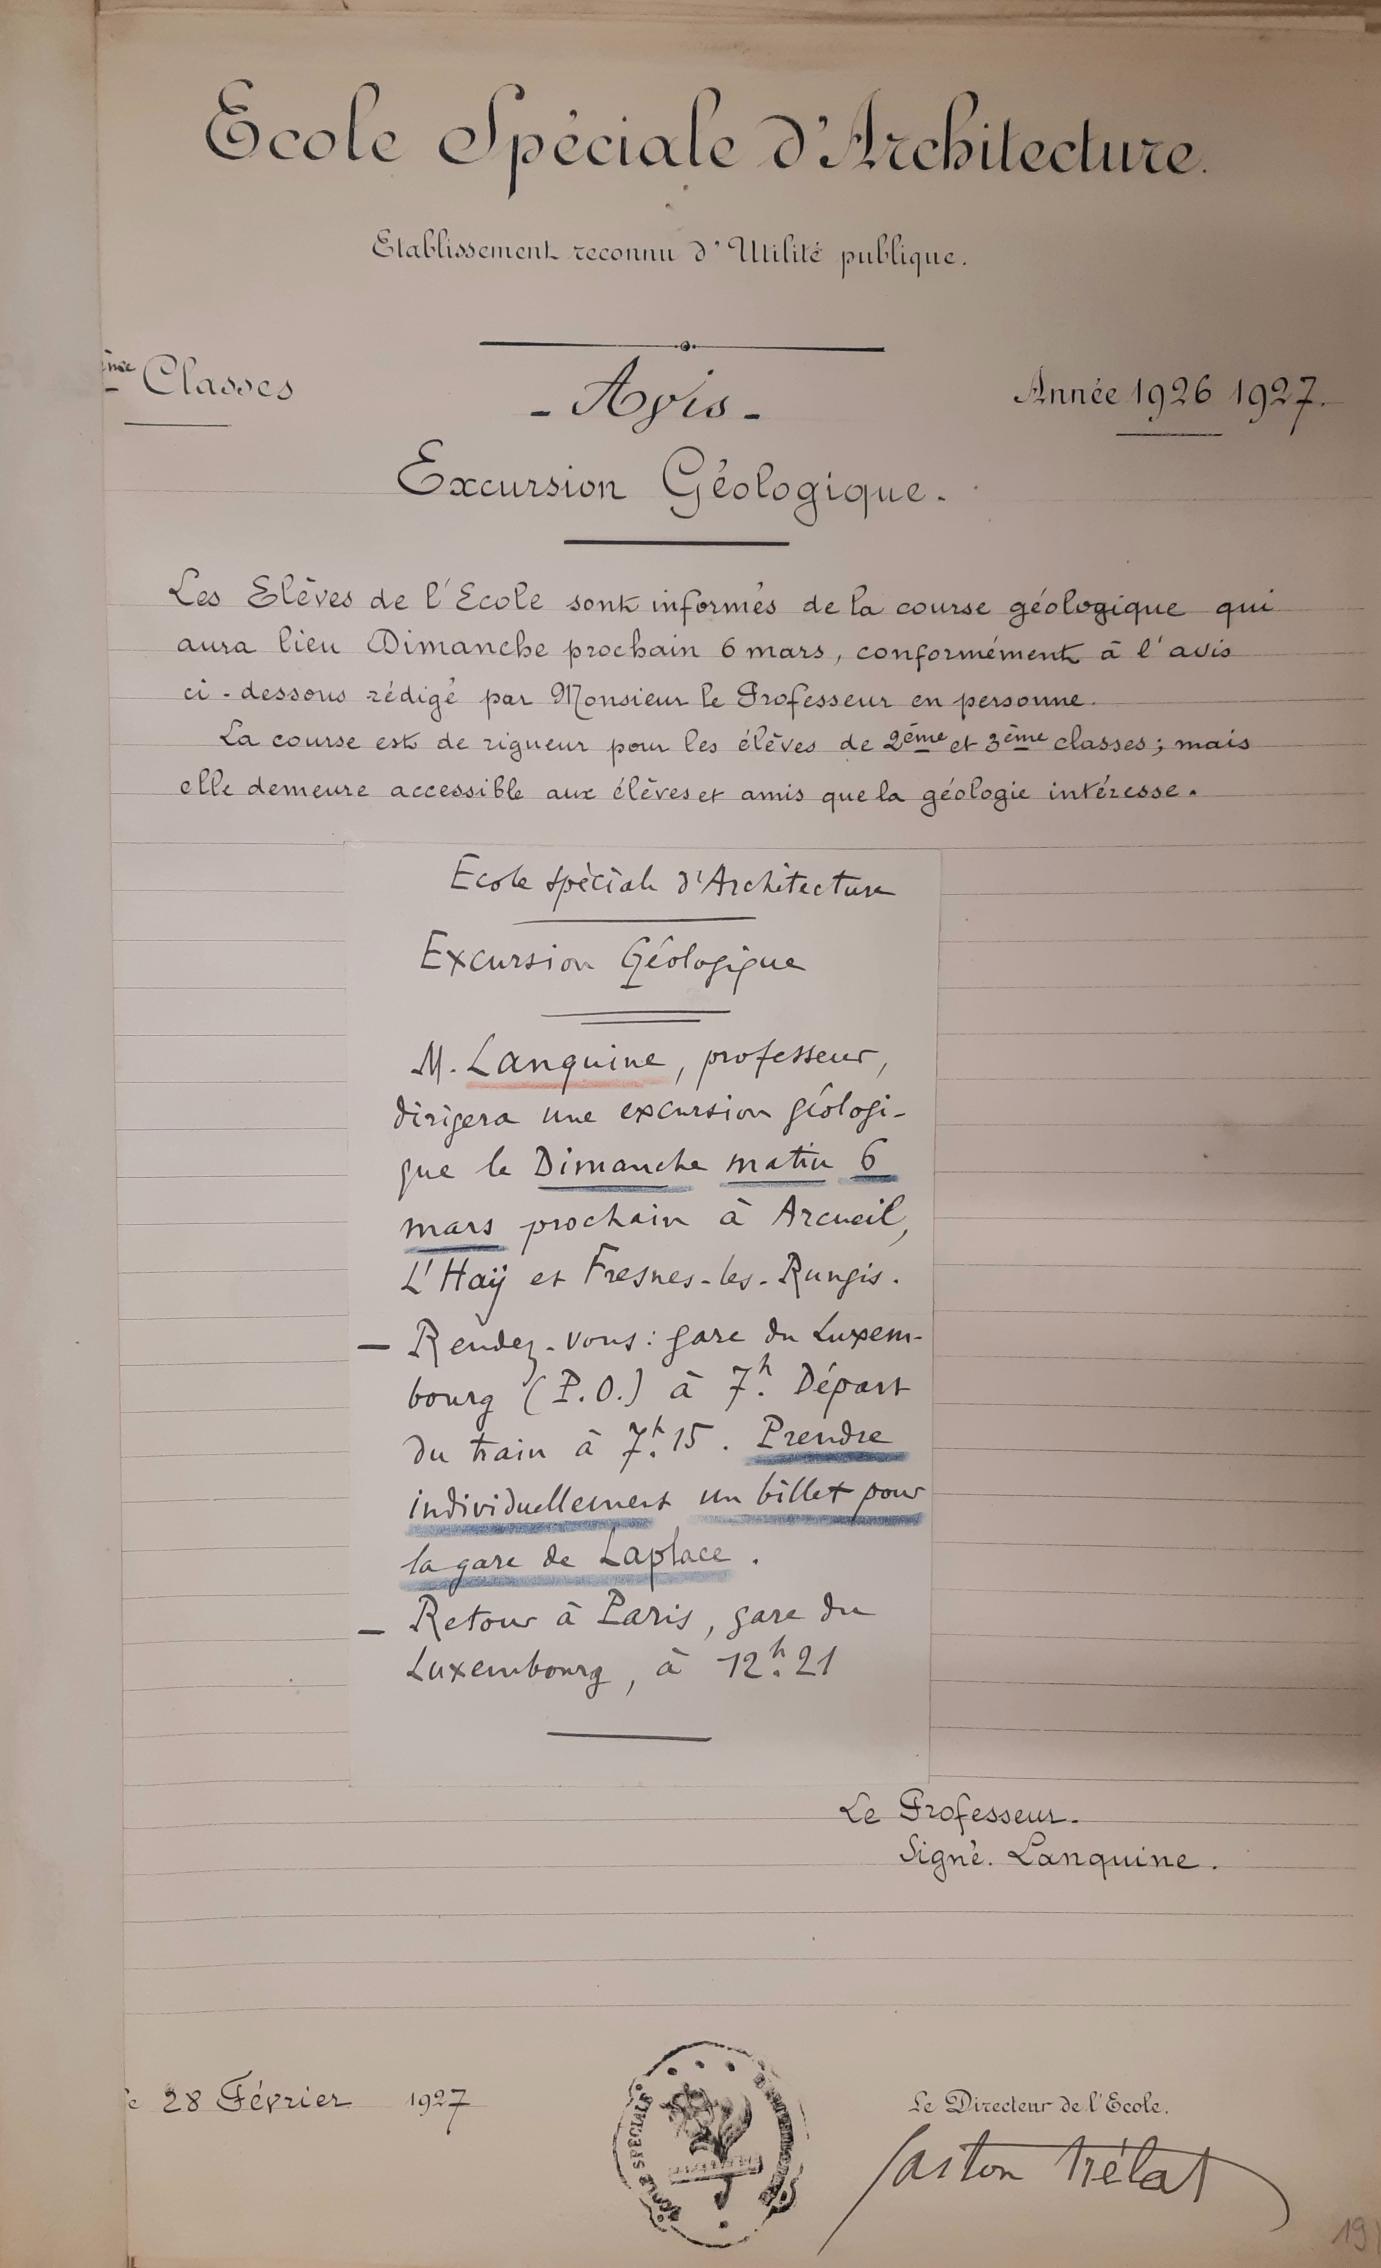 Ecole Spéciale d'Architecture.
Etablissement reconnu d'Utilité publique.
ème Classes
- Avis -
Année 1926 1927.
Excursion Géologique.
Les Elèves de l'Ecole sont informés de la course géologique qui
aura lieu Dimanche prochain 6 mars, conformément à l'avis
ci-dessous rédigé par Monsieur le Professeur en personne.
La course est de rigueur pour les élèves de 2ème et 3ème classes; mais
elle demeure accessible aux élèves et amis que la géologie intéresse.
Ecole spéciale d'Architecture
Excursion Géologique
M. Lanquine, professeur,
dirigera une excursion géologi-
que le Dimanche matin 6
mars prochain à Arcueil,
L'Haÿ et Fresnes-les-Rungis.
— Rendez-vous: gare du Luxem-
bourg (P.O.) à 7h. Départ
du train à 7h.15. Prendre
individuellement un billet pour
la gare de Laplace.
— Retour à Paris, gare du
Luxembourg, à 12h.21
Le Professeur.
Signé. Lanquine.
28 Février 1927
ECOLE SPÉCIALE
Le Directeur de l'Ecole.
Gaston Trélat
19